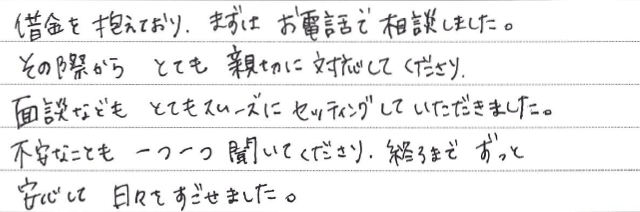 借金を抱えており、まずは お電話で 相談しました。
その際から とても 親切に 対応して くださり、
面談なども とてもスムーズに セッティングして いただきました。
不安なことも 一つ一つ 聞いてくださり、終るまで ずっと
安心して 日々をすごせました。